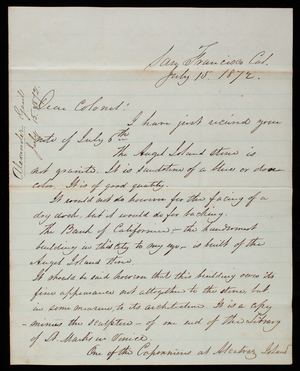 San Francisco Cal.
July 15. 1872.
Dear Colonel:
I have just received your
note of July 8th
The Angel Island stone is
not granite. It is sandstone of a blue or dove
color. It is of good quality.
It would not do however for the facing of a
dry dock, but it would do for backing.
The Bank of California - the handsomest
building in this city to my eye - is built of the
Angel Island stone.
It should be said however that this building owes its
fine appearance not altogether to the stone but
in some measure, to its architecture. It is a copy
- minus the sculpture - of one end of the Library
of St. Marks in Venice
One of the Caponniers at Alcatraz Island
Alexander
July 15, 1872